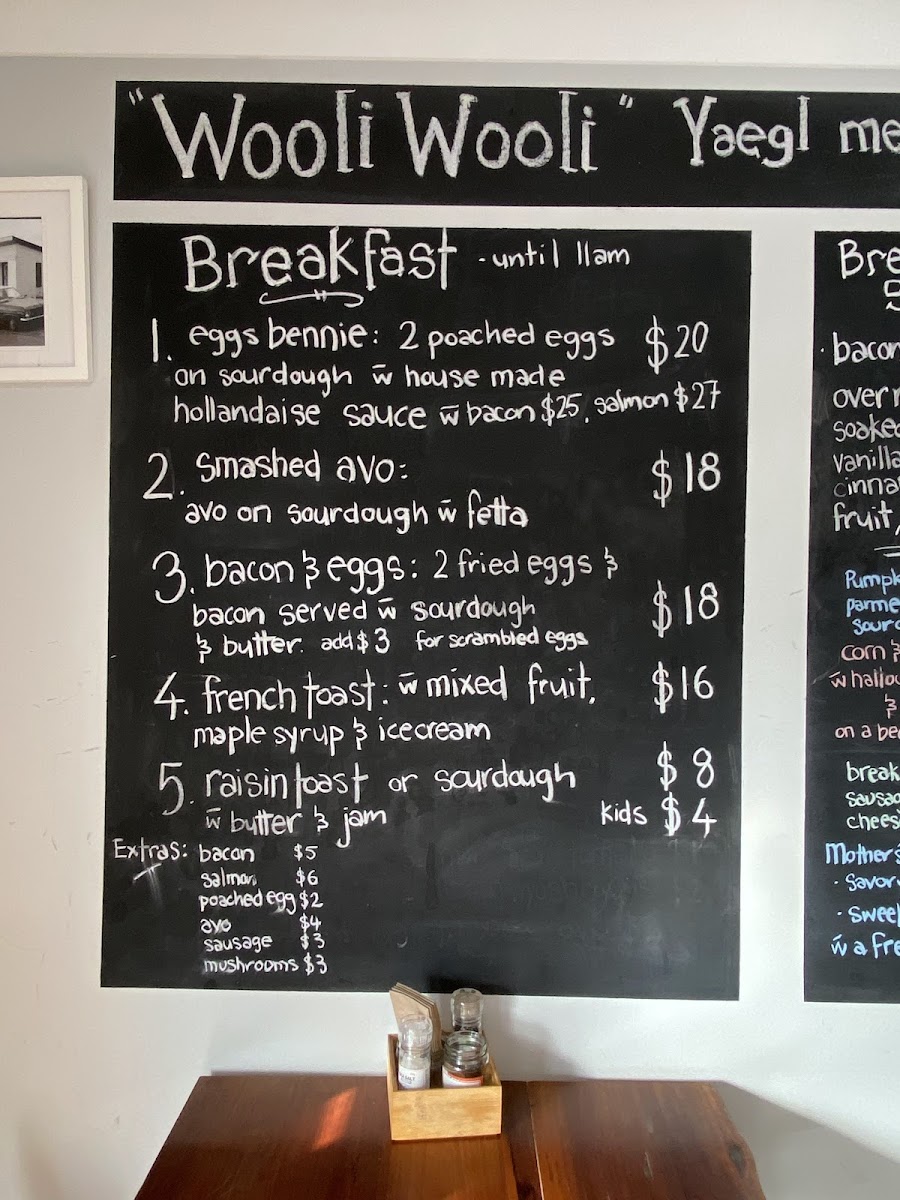 "Wooli Wooli" Yaegl me
Breakfast - until 11am
1. eggs bennie: 2 poached eggs $20
on sourdough w̄ house made
hollandaise sauce w̄ bacon $25, salmon $27
2. smashed avo: $18
avo on sourdough w̄ fetta
3. bacon & eggs: 2 fried eggs &
bacon served w̄ sourdough $18
& butter. add $3 for scrambled eggs
4. french toast: w̄ mixed fruit, $16
maple syrup & icecream
5. raisin toast or sourdough $8
w̄ butter & jam kids $4
Extras: bacon $5
salmon $6
poached egg $2
avo $4
sausage $3
mushrooms $3
Bre
· bacon
over n
soaked
vanilla
cinna
fruit,
Pumpk
parme
sourd
corn &
w̄ hallou
&
on a be
break
sausag
chees
Mothers
· savor
· sweet
w̄ a fre